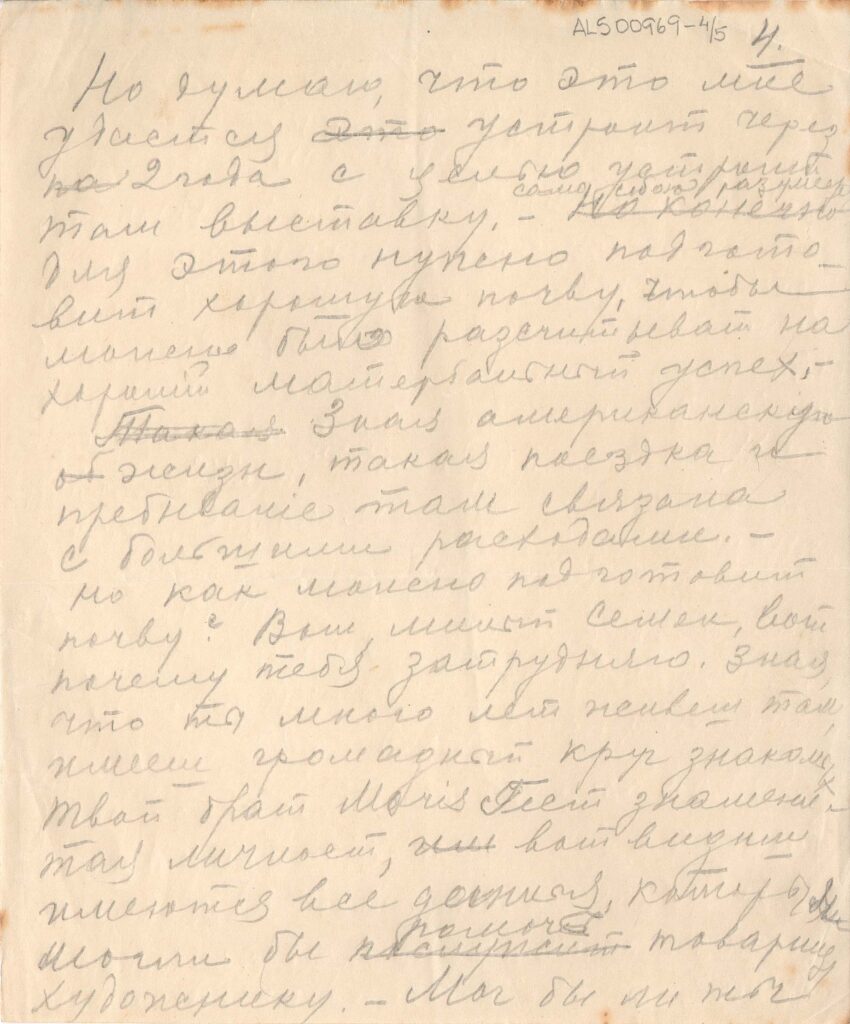 ALS00969-4/5 4.
Но думаю, что это мне
удастся это устроит через
на 2 года с целью устроит
само собою разумеер
там выставку. – Но конечно
для этого нужно подгото-
вит хорошую почву, чтобы
можно было разсчитыват на
хороший матерьальный успех, –
Такая Зная американскую
об жизн, такая поездка и
пребывание там связана
с большими расходами. –
но как можно подготовит
почву? Вот, милый Семек, вот
почему тебя затрудняю. Зная,
что ты много лет живеш там,
имееш громадный круг знакомых
твой брат Moris Гест знамени-
тая личност, или вот видно
имеются все данныя, которыя
помоч
могли бы послужит товарищу
художнику. – Мог бы ли ты